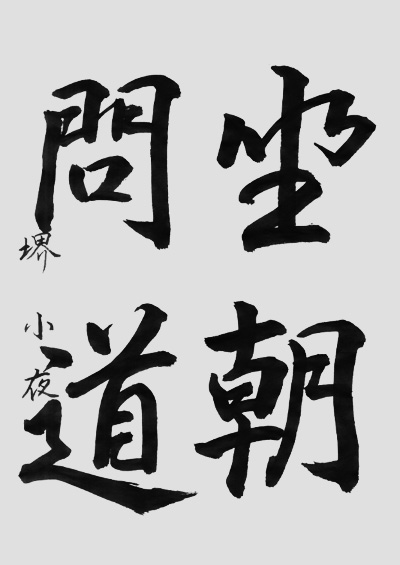 坐朝
問道
堺 小夜